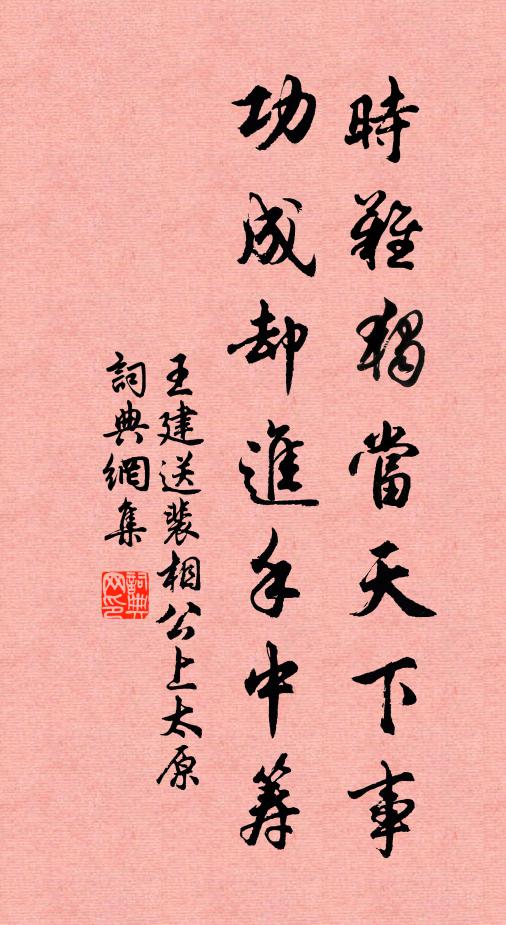 時難獨當天下事
功成却進手中籌
王建送裴相公上太原
詞典網集
詞典网印